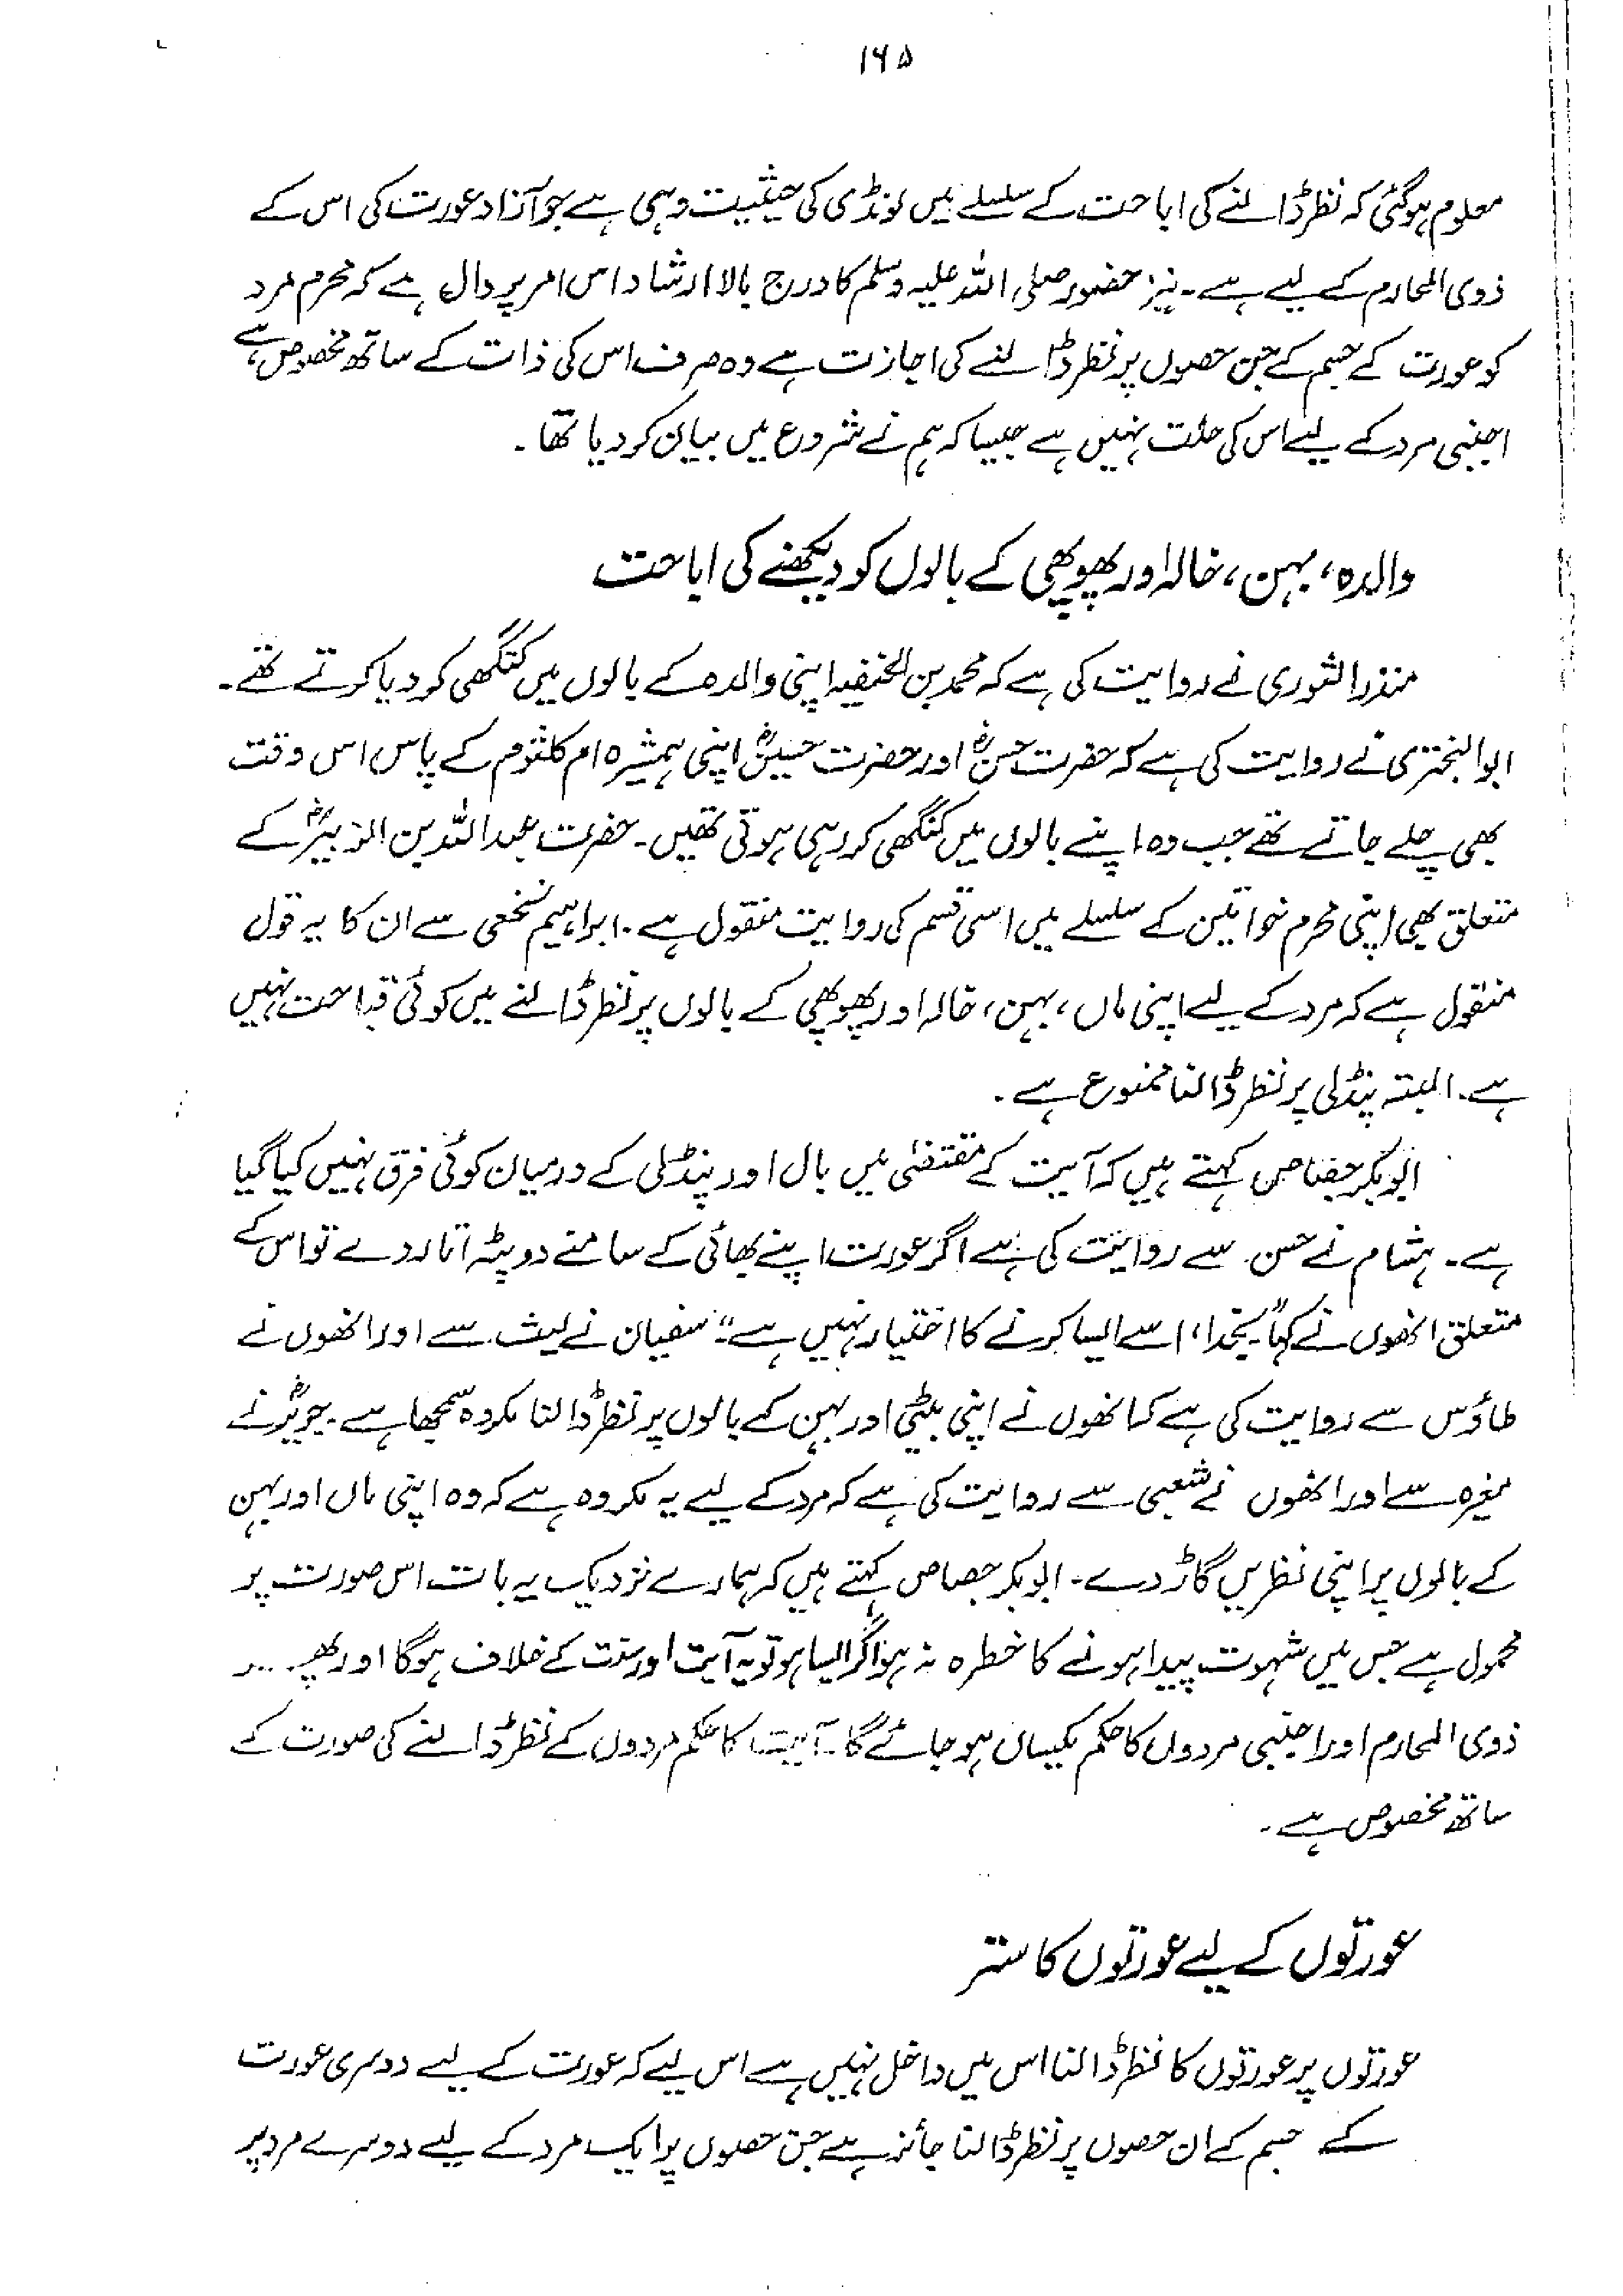 ۱۶۵
معلوم ہوگئی کہ نظر ڈالنے کی اباحت کے سلسلے میں لونڈی کی حیثیت وہی ہے جو آزاد عورت کی اس کے
ذوی المحارم کے لیے ہے۔ نیز حضور صلی اللہ علیہ وسلم کا درج بالا ارشاد اس امر پر دال ہے کہ محرم مرد
کو عورت کے جسم کے جن حصوں پر نظر ڈالنے کی اجازت ہے وہ صرف اس کی ذات کے ساتھ مخصوص ہے
اجنبی مرد کے لیے اس کی حلت نہیں ہے جیسا کہ ہم نے شروع میں بیان کر دیا تھا۔
والدہ، بہن، خالہ اور پھوپھی کے بالوں کو دیکھنے کی اباحت
منذر الثوری نے روایت کی ہے کہ محمد بن الحنفیہ اپنی والدہ کے بالوں میں کنگھی کر دیا کرتے تھے۔
ابوالبختری نے روایت کی ہے کہ حضرت حسنؓ اور حضرت حسینؓ اپنی ہمشیرہ ام کلثوم کے پاس اس وقت
بھی چلے جاتے تھے جب وہ اپنے بالوں میں کنگھی کر رہی ہوتی تھیں۔ حضرت عبداللہ بن الزبیرؓ کے
متعلق بھی اپنی محرم خواتین کے سلسلے میں اسی قسم کی روایت منقول ہے۔ ابراہیم نخعی سے ان کا یہ قول
منقول ہے کہ مرد کے لیے اپنی ماں، بہن، خالہ اور پھوپھی کے بالوں پر نظر ڈالنے میں کوئی قباحت نہیں
ہے۔ البتہ پنڈلی پر نظر ڈالنا ممنوع ہے۔
ابوبکر جصاص کہتے ہیں کہ آیت کے مقتضیٰ میں بال اور پنڈلی کے درمیان کوئی فرق نہیں کیا گیا
ہے۔ ہشام نے حسن سے روایت کی ہے اگر عورت اپنے بھائی کے سامنے دوپٹہ اتار دے تو اس کے
متعلق انھوں نے کہا "بخدا، اسے ایسا کرنے کا اختیار نہیں ہے"۔ سفیان نے لیث سے اور انھوں نے
طاؤس سے روایت کی ہے کہ انھوں نے اپنی بیٹی اور بہن کے بالوں پر نظر ڈالنا مکروہ سمجھا ہے۔ جریرؓ نے
مغیرہ سے اور انھوں نے شعبی سے روایت کی ہے کہ مرد کے لیے یہ مکروہ ہے کہ وہ اپنی ماں اور بہن
کے بالوں پر اپنی نظریں گاڑ دے۔ ابوبکر جصاص کہتے ہیں کہ ہمارے نزدیک یہ بات اس صورت پر
محمول ہے جس میں شہوت پیدا ہونے کا خطرہ نہ ہو اگر ایسا ہو تو یہ آیت اور سنت کے خلاف ہوگا اور پھر
ذوی المحارم اور اجنبی مردوں کا حکم یکساں ہو جائے گا۔ آیت کا حکم مردوں کے نظر ڈالنے کی صورت کے
ساتھ مخصوص ہے۔
عورتوں کے لیے عورتوں کا ستر
عورتوں پر عورتوں کا نظر ڈالنا اس میں داخل نہیں ہے اس لیے کہ عورت کے لیے دوسری عورت
کے جسم کے ان حصوں پر نظر ڈالنا جائز ہے جن حصوں پر ایک مرد کے لیے دوسرے مرد پر